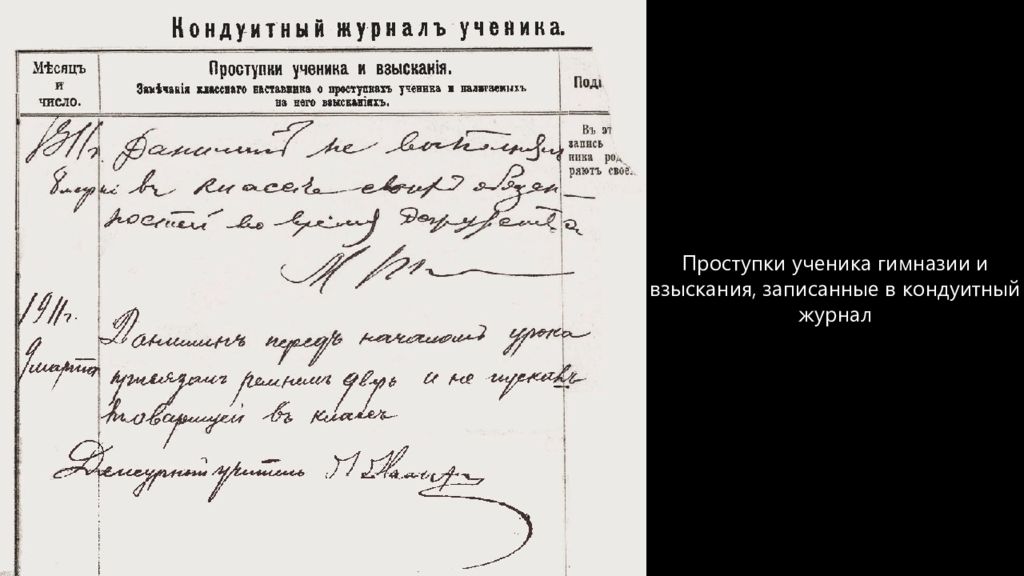 Кондуитный журналъ ученика.
Мѣсяцъ
и
число.
Проступки ученика и взысканія.
Замѣчанія класснаго наставника о проступкахъ ученика и налагаемыхъ
на него взысканіяхъ.
Подп
Въ эт
запись
ника род
ряютъ свое
1911г. не выполняль
въ классѣ своихъ обязан-
ностей во время дежурства
1911г.
9 марта
Данилинъ передъ началомъ урока
привязалъ ремнемъ дверь и не пускалъ
товарищей въ классъ
Дежурный учитель
Проступки ученика гимназии и
взыскания, записанные в кондуитный
журнал